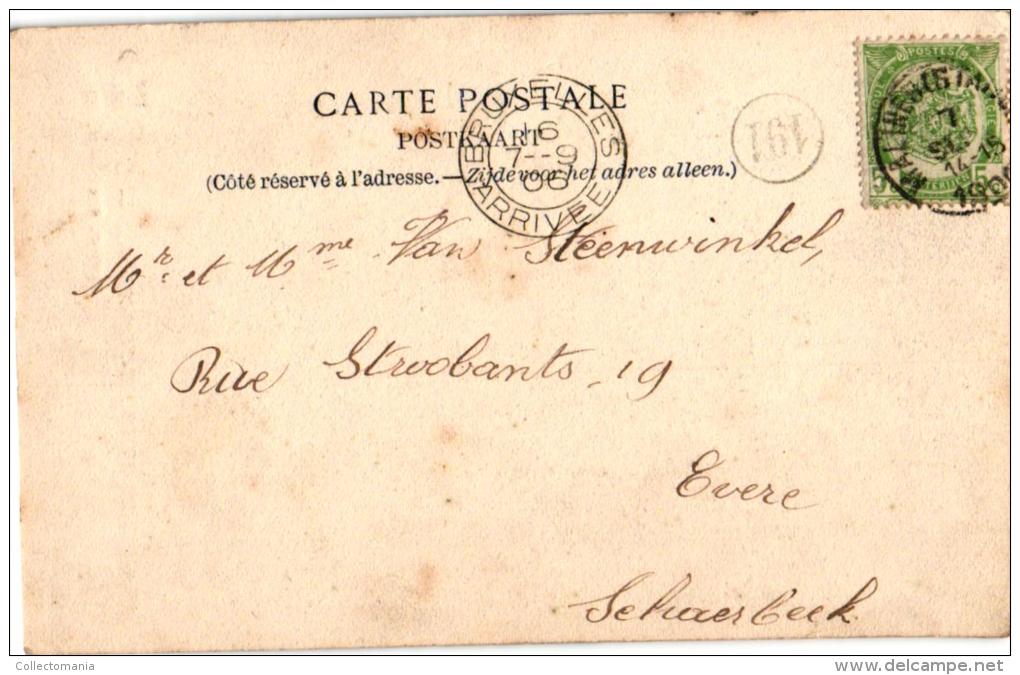 CARTE POSTALE
POSTKAART
(Côté réservé à l'adresse. — Zijde voor het adres alleen.)
BRUXELLES
16
7--9
06
ARRIVÉE
191
POSTES
14-15
Mr. et Mme Van Steenwinkel,
Rue Stroobants - 19
Evere
Schaerbeek
Collectomania
delcampe.net